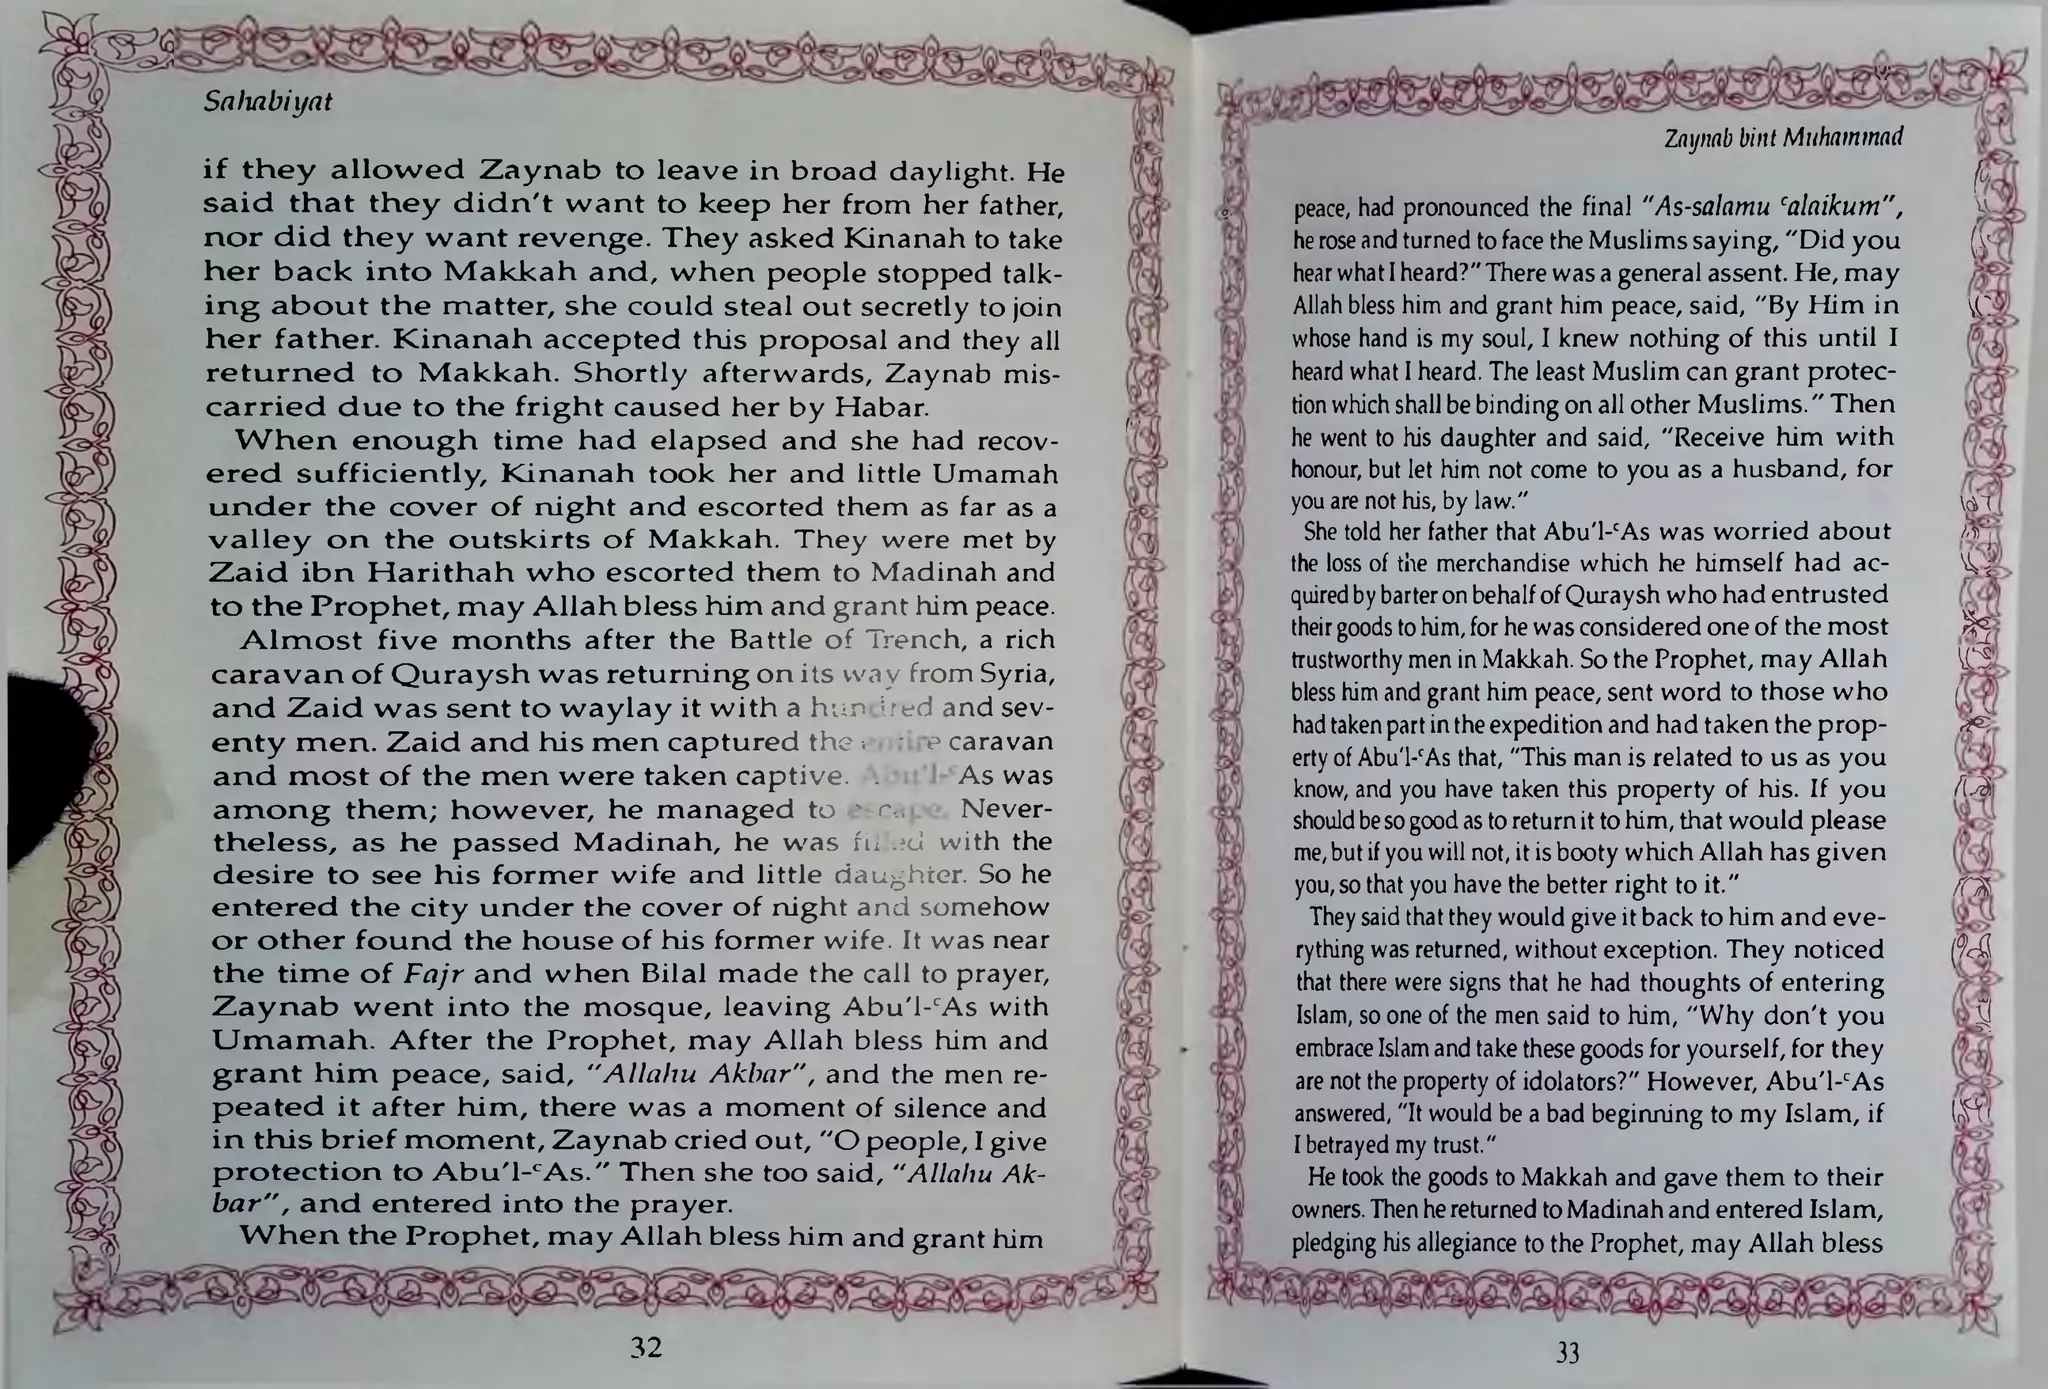 Sahabiyat
if they allowed Zaynab to leave in broad daylight. He
said that they didn't want to keep her from her father,
nor did they want revenge. They asked Kinanah to take
her back into Makkah and, when people stopped talk-
ing about the matter, she could steal out secretly to join
her father. Kinanah accepted this proposal and they all
returned to Makkah. Shortly afterwards, Zaynab mis-
carried due to the fright caused her by Habar.
When enough time had elapsed and she had recov-
ered sufficiently, Kinanah took her and little Umamah
under the cover of night and escorted them as far as a
valley on the outskirts of Makkah. They were met by
Zaid ibn Harithah who escorted them to Madinah and
to the Prophet, may Allah bless him and grant him peace.
Almost five months after the Battle of Trench, a rich
caravan of Quraysh was returning on its way from Syria,
and Zaid was sent to waylay it with a hundred and sev-
enty men. Zaid and his men captured the entire caravan
and most of the men were taken captive. Abu'l-ʿAs was
among them; however, he managed to escape. Never-
theless, as he passed Madinah, he was filled with the
desire to see his former wife and little daughter. So he
entered the city under the cover of night and somehow
or other found the house of his former wife. It was near
the time of Fajr and when Bilal made the call to prayer,
Zaynab went into the mosque, leaving Abu'l-ʿAs with
Umamah. After the Prophet, may Allah bless him and
grant him peace, said, "Allahu Akbar", and the men re-
peated it after him, there was a moment of silence and
in this brief moment, Zaynab cried out, "O people, I give
protection to Abu'l-ʿAs." Then she too said, "Allahu Ak-
bar", and entered into the prayer.
When the Prophet, may Allah bless him and grant him
32
Zaynab bint Muhammad
peace, had pronounced the final "As-salamu ʿalaikum",
he rose and turned to face the Muslims saying, "Did you
hear what I heard?" There was a general assent. He, may
Allah bless him and grant him peace, said, "By Him in
whose hand is my soul, I knew nothing of this until I
heard what I heard. The least Muslim can grant protec-
tion which shall be binding on all other Muslims." Then
he went to his daughter and said, "Receive him with
honour, but let him not come to you as a husband, for
you are not his, by law."
She told her father that Abu'l-ʿAs was worried about
the loss of the merchandise which he himself had ac-
quired by barter on behalf of Quraysh who had entrusted
their goods to him, for he was considered one of the most
trustworthy men in Makkah. So the Prophet, may Allah
bless him and grant him peace, sent word to those who
had taken part in the expedition and had taken the prop-
erty of Abu'l-ʿAs that, "This man is related to us as you
know, and you have taken this property of his. If you
should be so good as to return it to him, that would please
me, but if you will not, it is booty which Allah has given
you, so that you have the better right to it."
They said that they would give it back to him and eve-
rything was returned, without exception. They noticed
that there were signs that he had thoughts of entering
Islam, so one of the men said to him, "Why don't you
embrace Islam and take these goods for yourself, for they
are not the property of idolators?" However, Abu'l-ʿAs
answered, "It would be a bad beginning to my Islam, if
I betrayed my trust."
He took the goods to Makkah and gave them to their
owners. Then he returned to Madinah and entered Islam,
pledging his allegiance to the Prophet, may Allah bless
33